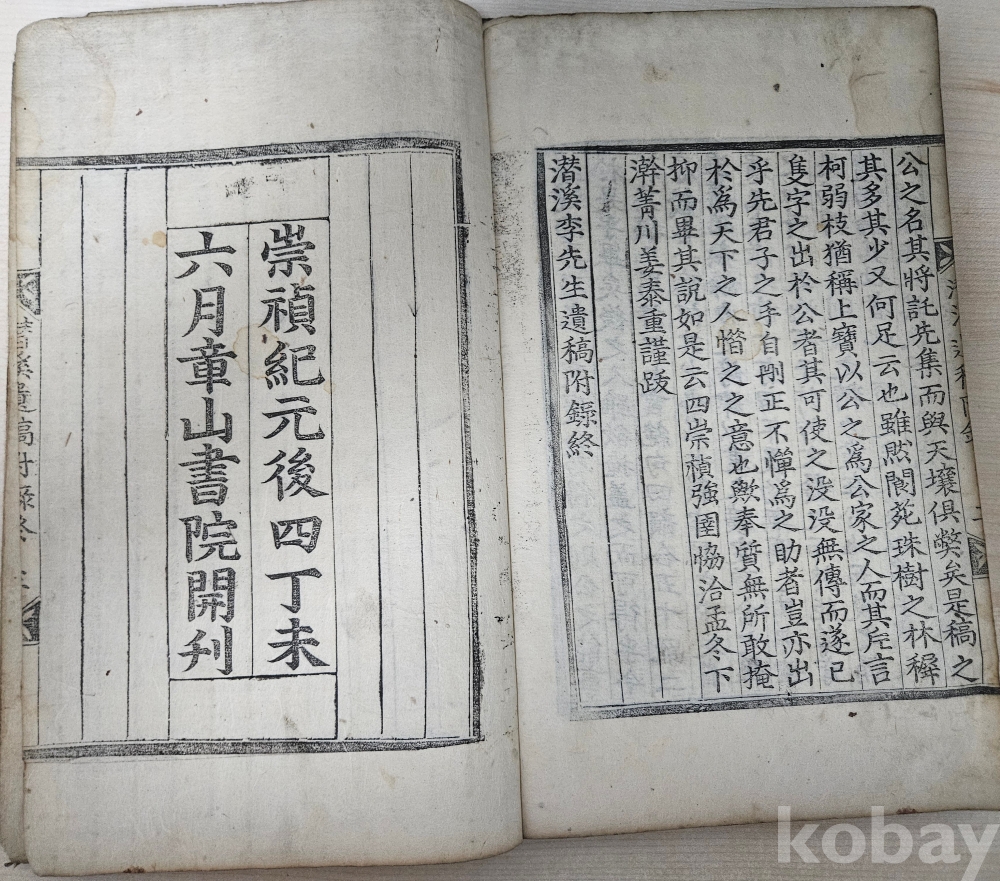 公之名其將託先集而與天壤俱弊矣是稿之
其多其少又何足云也雖然閬苑珠樹之林穉
柯弱枝猶稱上寶以公之爲公家之人而其片言
隻字之出於公者其可使之没没無傳而遂已
乎先君子之手自刪正不憚爲之助者豈亦出
於爲天下之人惜之之意也歟奉質無所敢掩
抑而畢其說如是云四崇禎強圉協洽孟冬下
澣菁川姜泰重謹跋
潜溪李先生遺稿附錄終
崇禎紀元後四丁未
六月章山書院開刋
遺稿附錄終
kobay